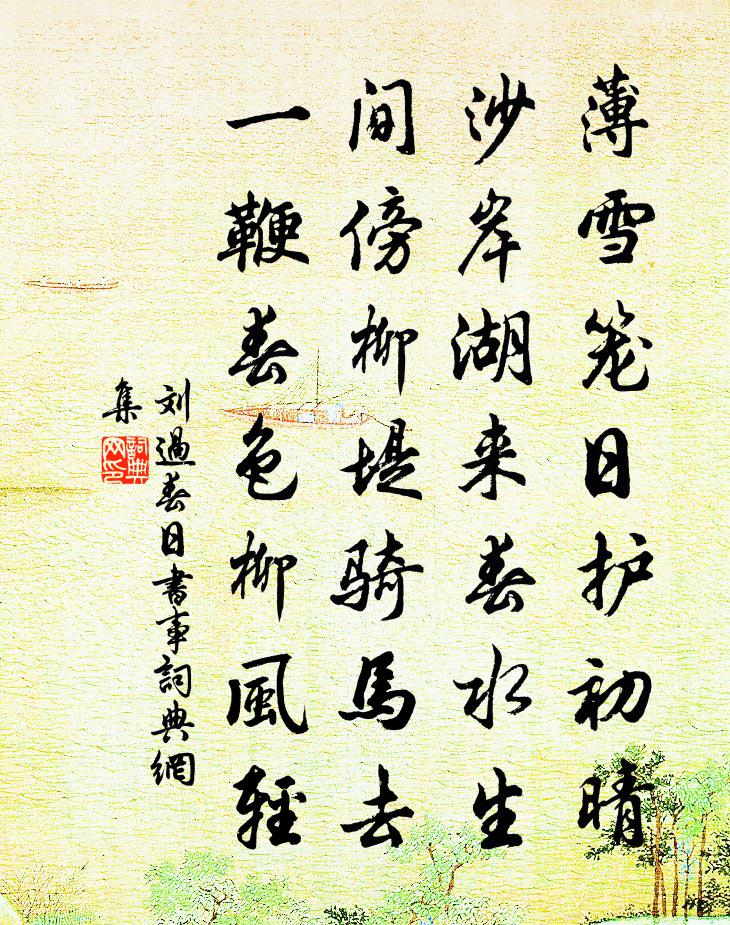 薄雪笼日护初晴
沙岸湖来春水生
间傍柳堤骑馬去
一鞭春色柳風輕
刘過春日書事詞典網
集
詞典
网印